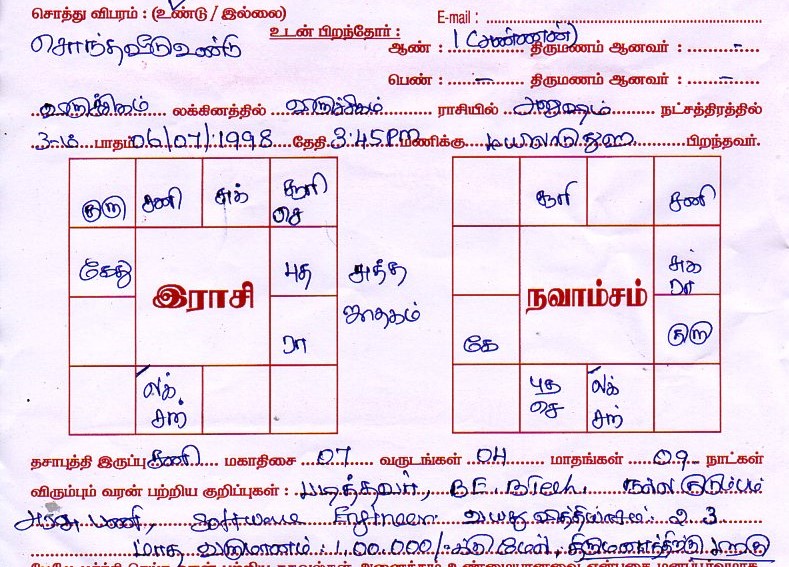 சொத்து விபரம் : (உண்டு / இல்லை)
E-mail :
சொந்தவீடு உண்டு
உடன் பிறந்தோர் :
ஆண் : 1 (அண்ணன்) திருமணம் ஆனவர் : -
பெண் : - திருமணம் ஆனவர் : -
விருச்சிகம் லக்கினத்தில் விருச்சிகம் ராசியில் அனுஷம் நட்சத்திரத்தில்
3-ம் பாதம் 06/07/1998 தேதி 3:45PM மணிக்கு பிறந்தவர்.
குரு சனி சுக் சூரி செ
கேது புத
ரா
லக் சந்
இராசி
சுத்த ஜாதகம்
சூரி சனி
சுக் ரா
கே குரு
புத செ லக் சந்
நவாம்சம்
தசாபுத்தி இருப்பு சனி மகாதிசை 07 வருடங்கள் 04 மாதங்கள் 09 நாட்கள்
விரும்பும் வரன் பற்றிய குறிப்புகள் : படித்தவர், B.E. B.Tech. நல்ல குடும்பம்
அரசு பணி, Software Engineer வயது வித்தியாசம்: 2 3
மாத வருமானம் : 1,00,000/-க்கு மேல்,